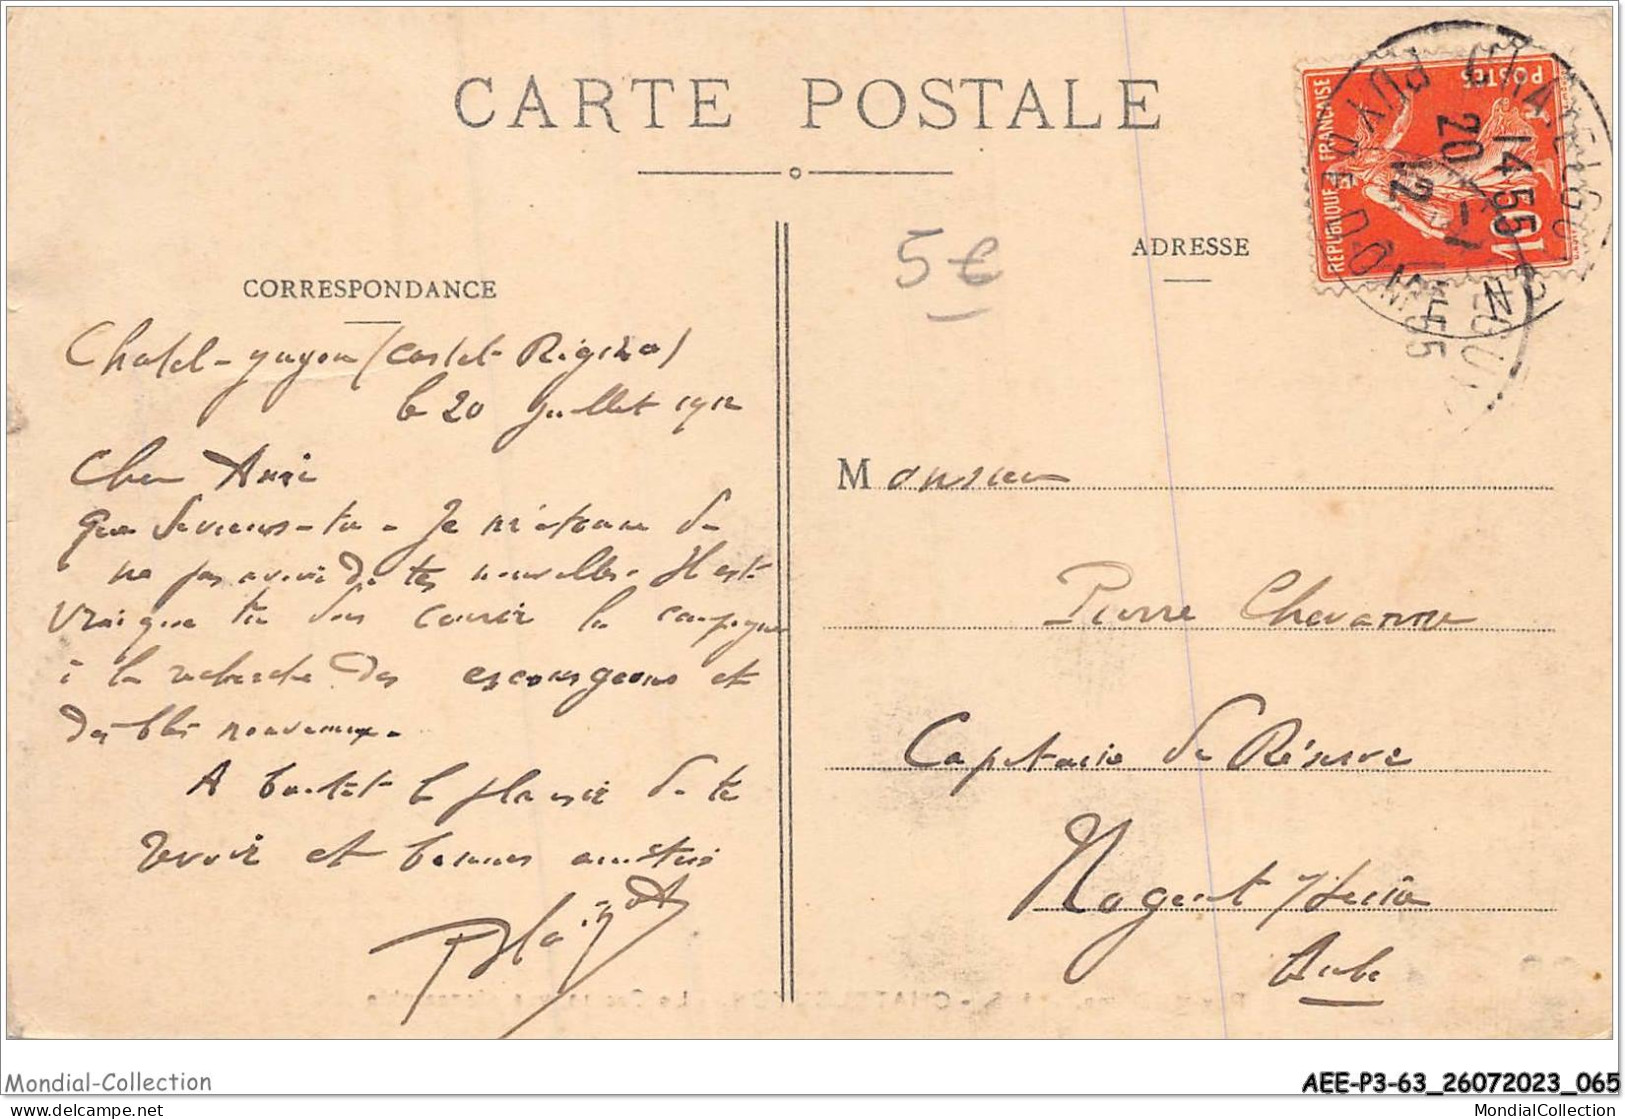 CARTE POSTALE
CORRESPONDANCE
Chatel-guyon (Castel Régina)
le 20 juillet 1912
Cher Ami
Que deviens-tu. Je m'étonne de
ne pas avoir de tes nouvelles. Il est
vrai que tu dois courir la campagne
à la recherche des escourgeons et
des blés nouveaux.
A bientôt le plaisir de te
revoir et bonnes amitiés
5€
ADRESSE
REPUBLIQUE FRANÇAISE
POSTES
10
CHATELGUYON
PUY DE DÔME
14 55
20 -7
12
Monsieur
Pierre Chavanne
Capitaine de Réserve
Nogent s/ Seine
Aube
Mondial-Collection
AEE-P3-63_26072023_065
www.delcampe.net
MondialCollection